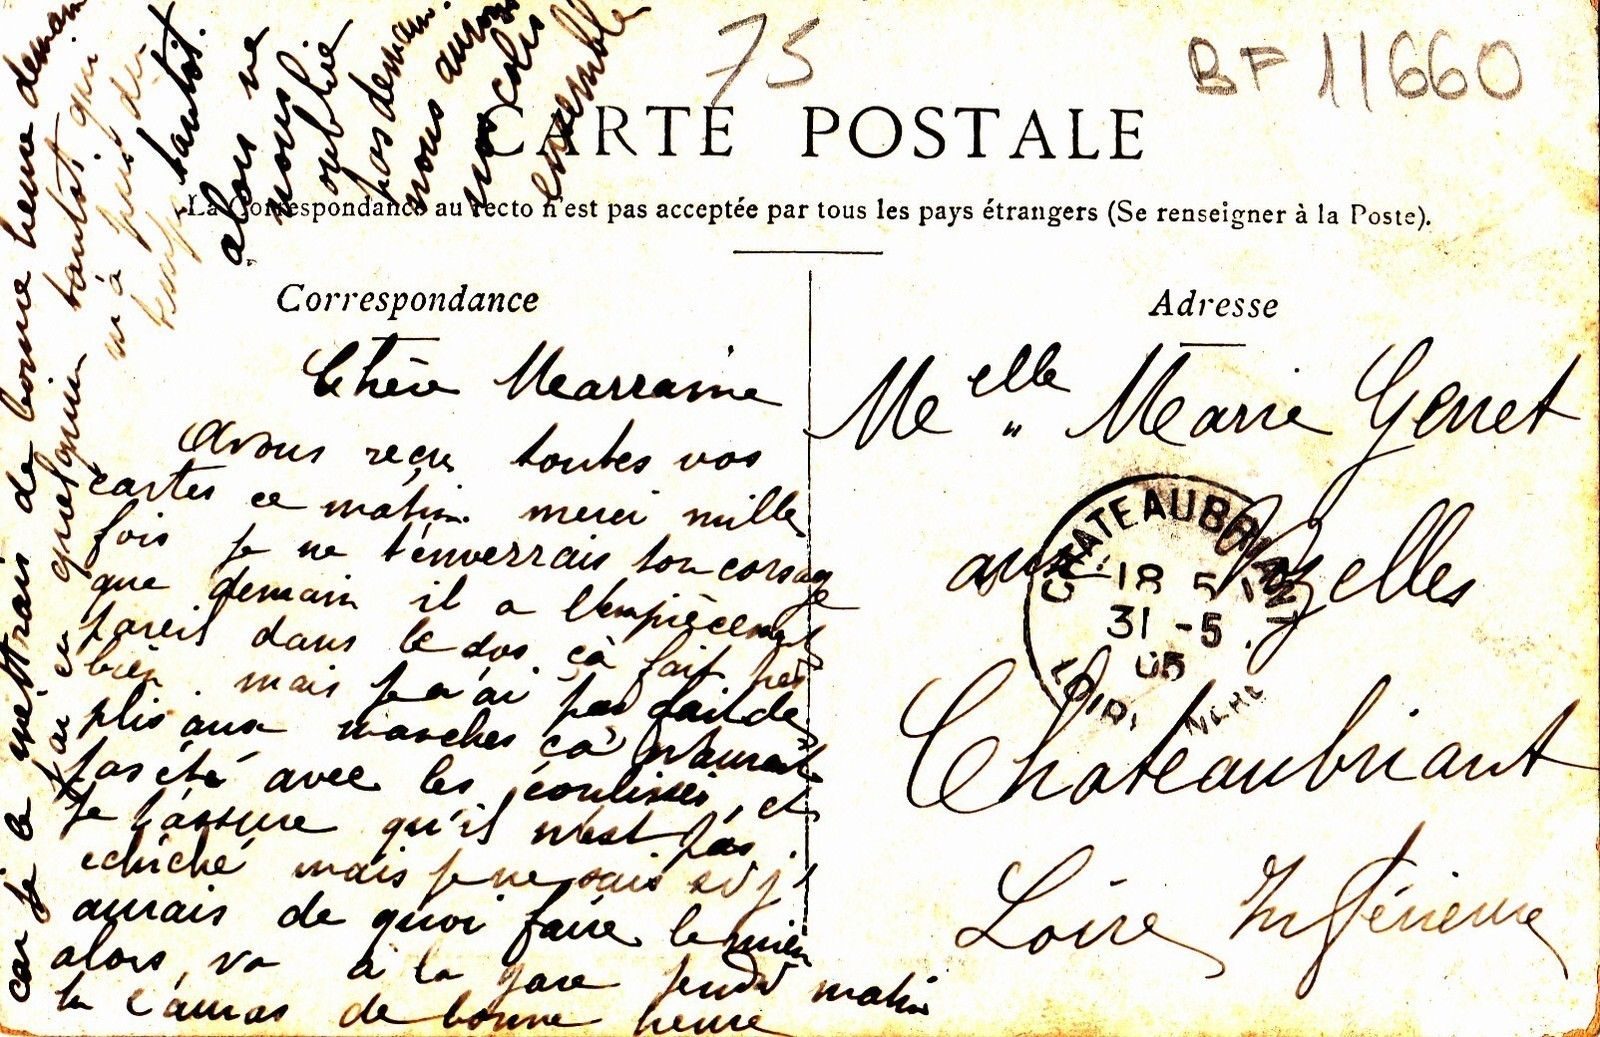 75
BF 11660
CARTE POSTALE
La Correspondance au recto n'est pas acceptée par tous les pays étrangers (Se renseigner à la Poste).
Correspondance
Chère Marraine
Avons reçu toutes vos
cartes ce matin. merci mille
fois je ne t'enverrais ton corsage
que demain il a l'empiècement
pareil dans le dos. çà fait
bien. mais je n'ai pas fait de
plis aux manches çà n'aurait
pas été avec les coulisses, et
je t'assure qu'il n'est pas
mais je ne sais si j'
aurais de quoi faire le mien
alors, va à la gare jeudi matin
tu l'auras de bonne heure
car je le mettrais de bonne heure demain
j'ai eu quelqu'un tantôt qui
m'a
tantôt.
alors ne
nous
oublie
pas demain.
nous aurons
nos colis
ensemble
Adresse
Melle " Marie Genet
aux
Châteaubriant
Loire Inférieure
CHATEAUBRIANT
18
31 -5
05
LOIRE